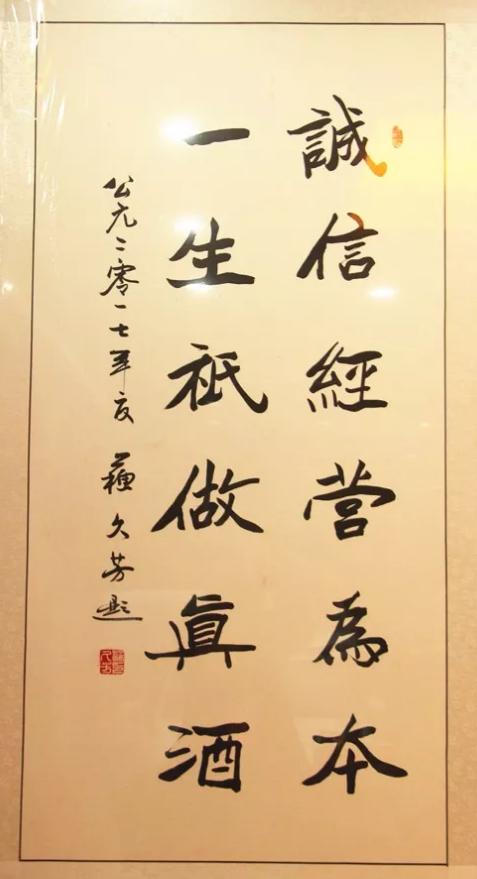 誠信經營為本
一生祇做真酒
公元二零一七年夏 蘇久芳題